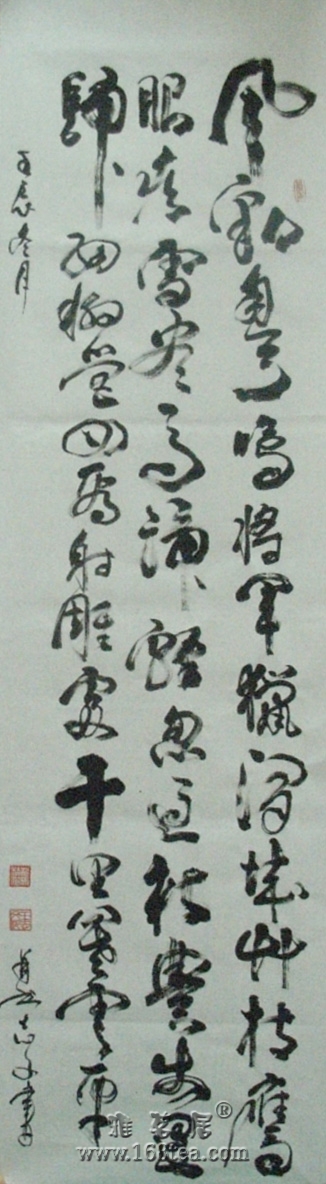 風勁角弓鳴將軍獵渭城艸枯鷹
眼疾雪尽马蹄輕忽过新豐市還
歸细柳營回看射雕處千里暮雲平
壬辰冬月
雅茗居®
www.168tea.com